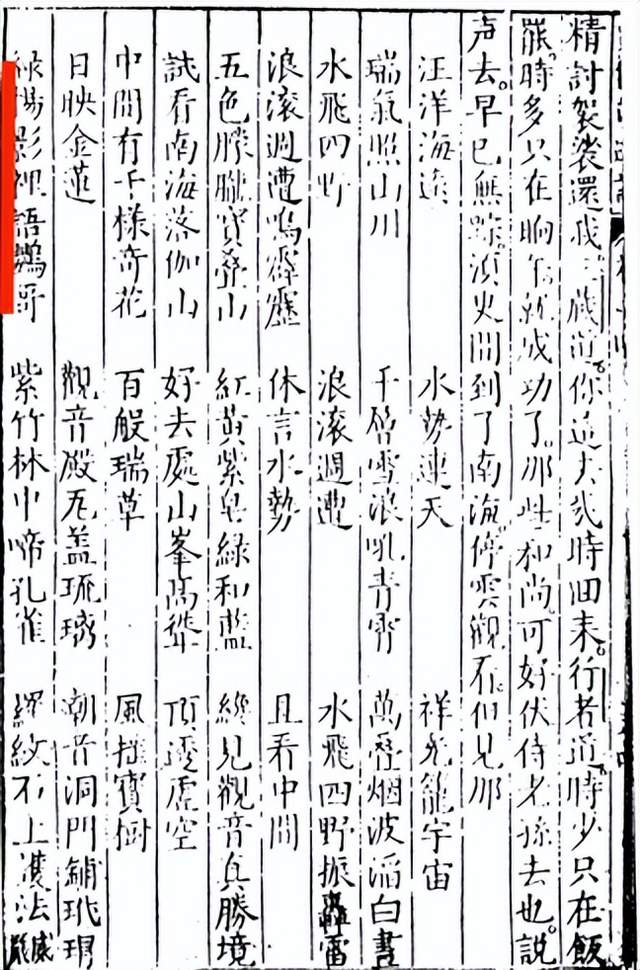 精討袈裟還我三藏道你這去幾時回来行者道時少只在飯
罷時多只在晌午就成功了那些和尚可好伏侍老孫去也說
声去早已無踪湏臾間到了南海停雲觀看但見那
汪洋海遠　水勢連天　祥光籠宇宙
瑞氣照山川　千層雪浪吼青霄　萬疊烟波滔白晝
水飛四野　浪滾週遭　水飛四野振轟雷
浪滾週遭鳴霹靂　休言水勢　且看中間
五色朦朧寶疊山　紅黃紫皂綠和藍　纔見觀音真勝境
試看南海落伽山　好去處山峯高聳　頂透虛空
中間有千樣奇花　百般瑞草　風搖寶樹
日映金蓮　觀音殿瓦盖琉璃　潮音洞門鋪玳瑁
綠楊影裡語鸚哥　紫竹林中啼孔雀　羅紋石上護法威嚴